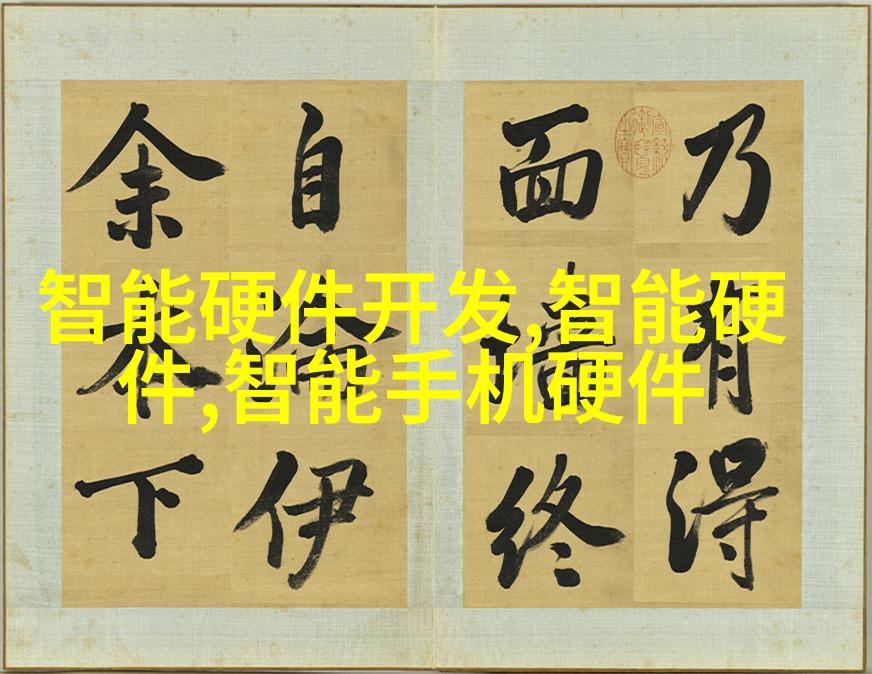 智能硬件开发,智能硬
件,智能手机硬件
乃有得
面終
自伊
余下